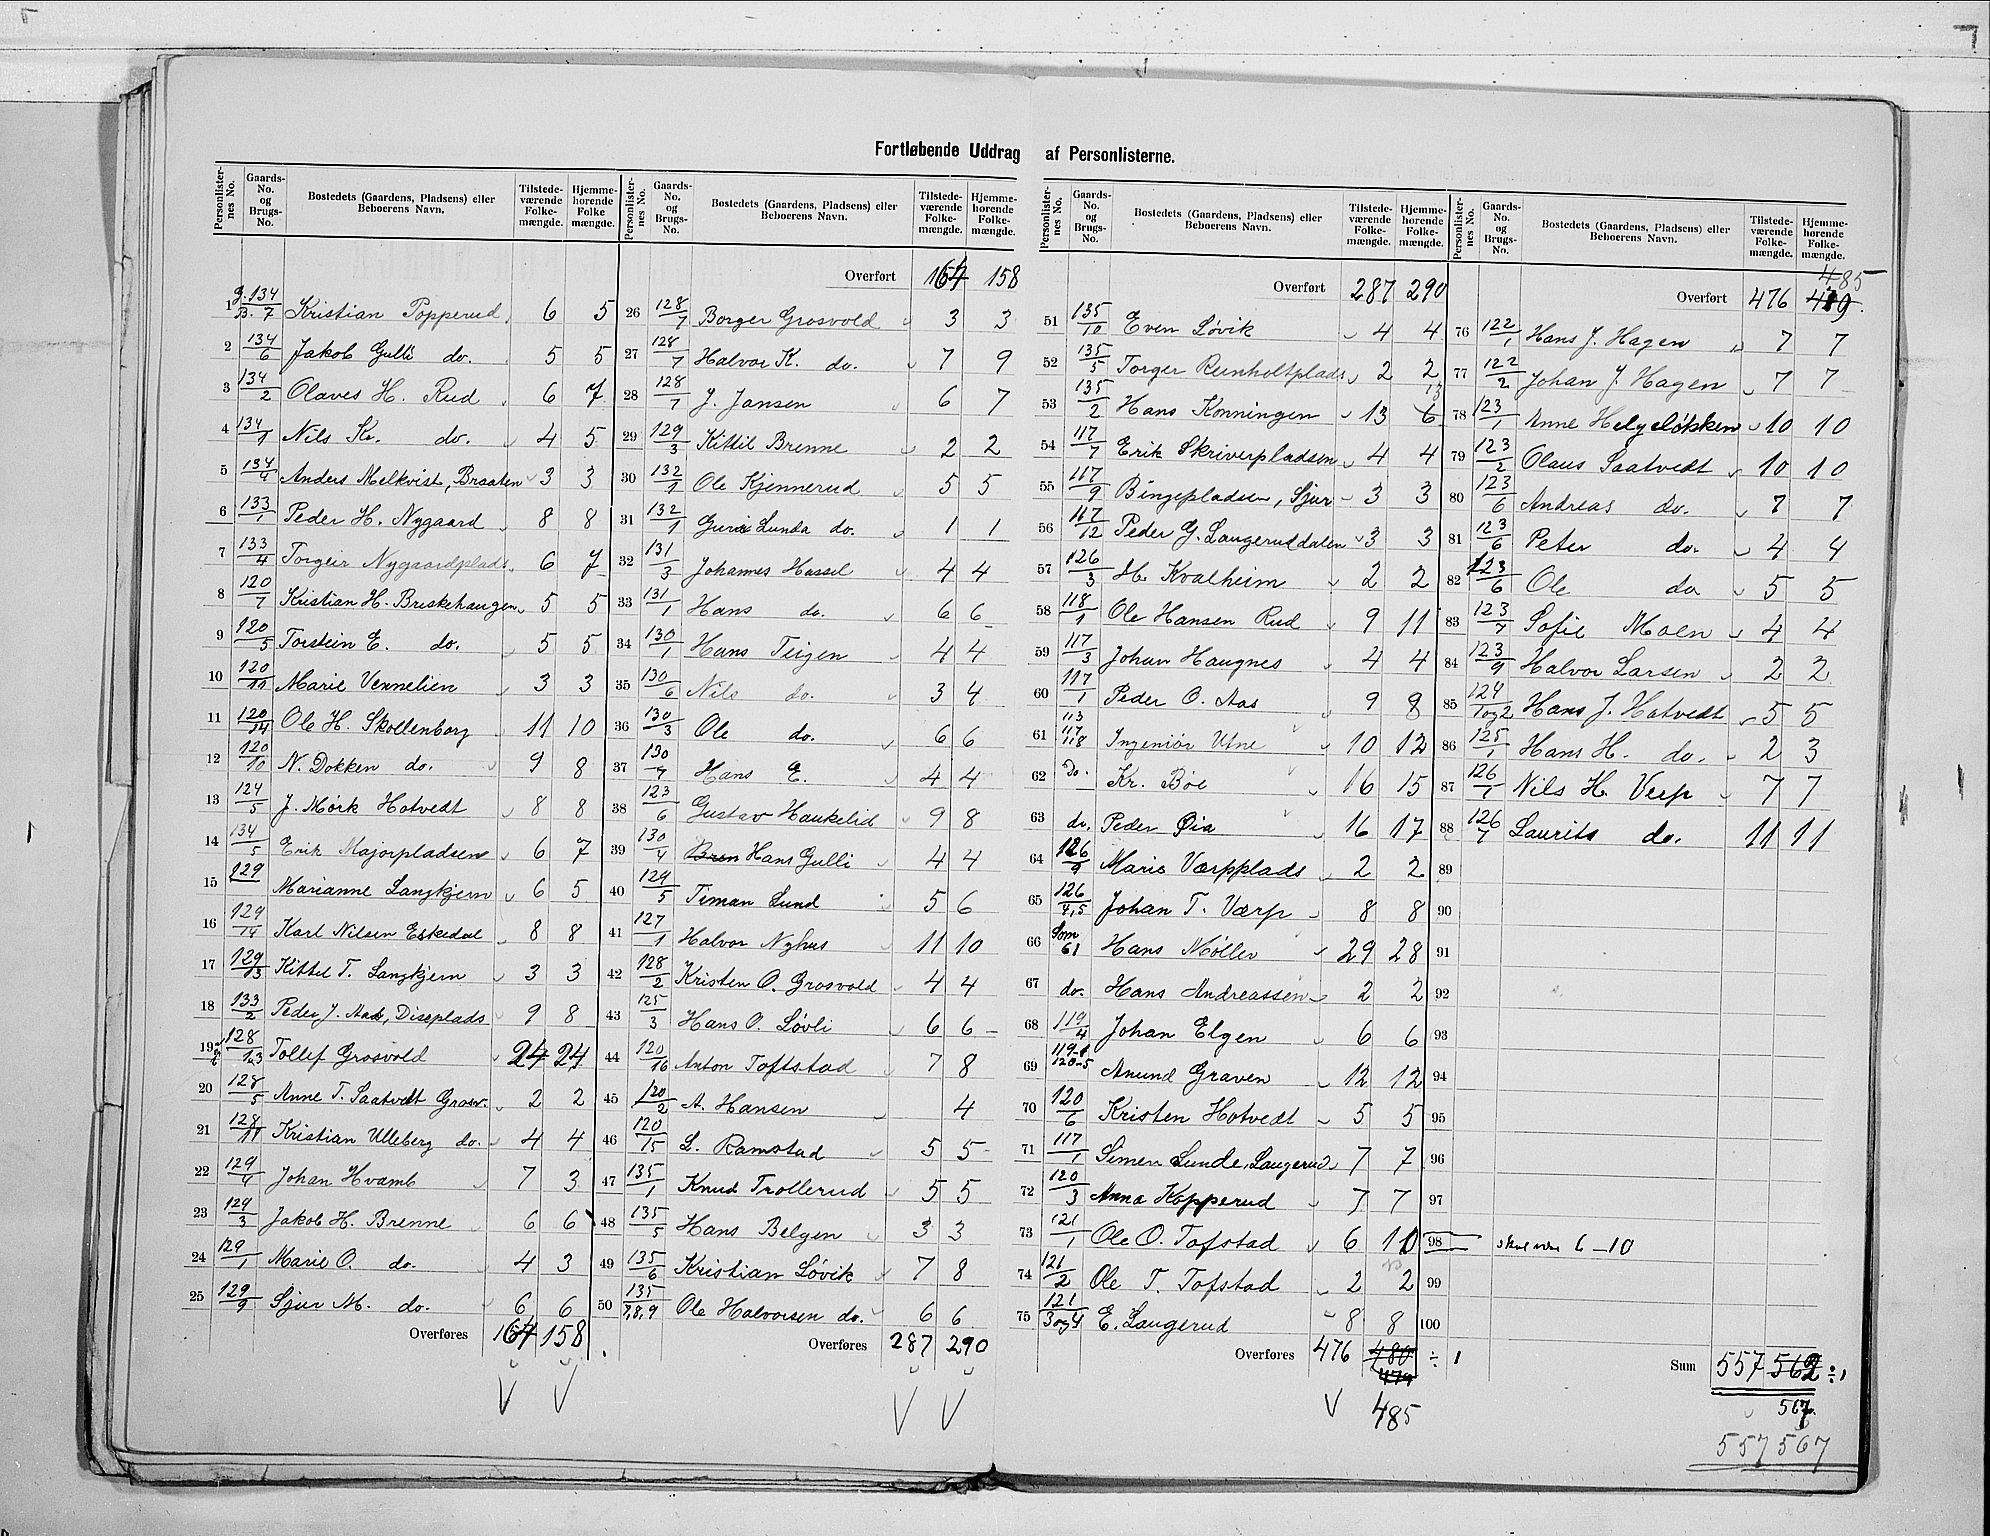 Fortløbende Uddrag af Personlisterne.
Personlister-nes No. | Gaards-No. og Brugs-No. | Bostedets (Gaardens, Pladsens) eller Beboerens Navn. | Tilstede-værende Folke-mængde. | Hjemme-hørende Folke mængde.
1 g. 134 B. 7 Kristian Popperud 6 5
2 134/6 Jakob Gulli do. 5 5
3 134/2 Olaves H. Rud 6 7
4 134/1 Nils Kr. do. 4 5
5 134/4 Anders Melkvist, Braaten 3 3
6 133/1 Peder H. Nygaard 8 8
7 133/4 Torgeir Nygaardplads 6 7
8 120/7 Kristian H. Briskehaugen 5 5
9 120/5 Torstein E. do. 5 5
10 120/11 Marie Vennelien 3 3
11 120/14 Ole H. Skollenborg 11 10
12 120/10 N. Dokken do. 9 8
13 124/5 J. Mørk Hotvedt 8 8
14 134/5 Erik Majorpladsen 6 7
15 129 Marianne Langkjern 6 5
16 129/14 Karl Nilsen Eskedal 8 8
17 129/13 Kittel T. Langkjern 3 3
18 133/2 Peder J. Aas, Diseplads 9 8
19 128/1.3 Tollef Grosvold 24 24
20 128/5 Anne T. Saatvedt Grosv. 2 2
21 128/11 Kristian Ulleberg do. 4 4
22 129/4 Johan Hvamb 7 3
23 129/3 Jakob H. Brenne 6 6
24 129/1 Marie O. do. 4 3
25 129/9 Sjur M. do. 6 6
Overføres 164 158
Personlister-nes No. | Gaards-No. og Brugs-No. | Bostedets (Gaardens, Pladsens) eller Beboerens Navn. | Tilstede-værende Folke-mængde. | Hjemme-hørende Folke-mængde.
Overført 164 158
26 128/7 Borger Grosvold 3 3
27 128/7 Halvor K. do. 7 9
28 128/7 J. Jansen 6 7
29 129/3 Kittil Brenne 2 2
30 132/1 Ole Kjennerud 5 5
31 132/1 Guri Lunda do. 1 1
32 131/3 Johannes Hassel 4 4
33 131/1 Hans do. 6 6
34 130/1 Hans Teigen 4 4
35 130/6 Nils do. 3 4
36 130/3 Ole do. 6 6
37 130/7 Hans E. 4 4
38 123/6 Gustav Haukelid 9 8
39 130/4 Bren Hans Gulli 4 4
40 129/5 Timan Lund 5 6
41 127/1 Halvor Nyhus 11 10
42 128/2 Kristen O. Grosvold 4 4
43 125/3 Hans O. Løvli 6 6
44 120/16 Anton Toftstad 7 8
45 120/2 A. Hansen 4
46 120/15 L. Ramstad 5 5
47 135/1 Knud Trollerud 5 5
48 135/5 Hans Belgen 3 3
49 135/6 Kristian Løvik 7 8
50 135/7,8,9 Ole Halvorsen do. 6 6
Overføres 287 290
Personlister-nes No. | Gaards-No. og Brugs-No. | Bostedets (Gaardens, Pladsens) eller Beboerens Navn. | Tilstede-værende Folke-mængde. | Hjemme-hørende Folke-mængde.
Overført 287 290
51 135/10 Even Løvik 4 4
52 135/5 Torger Reinholtplads 2 2
53 135/2 Hans Konningen 13 6 13
54 117/7 Erik Skriverpladsen 4 4
55 117/9 Bingepladsen, Sjur 3 3
56 117/12 Peder G. Laugeruddalen 3 3
57 126/3 H. Kvalheim 2 2
58 118/1 Ole Hansen Rud 9 11
59 117/3 Johan Haugnes 4 4
60 117/1 Peder O. Aas 9 8
61 113 117 118 Ingeniør Utne 10 12
62 Do. Kr. Bøe 16 15
63 do. Peder Øia 16 17
64 126/9 Marie Værpplads 2 2
65 126/4,5 Johan T. Værp 8 8
66 Som 61 Hans Møller 29 28
67 do. Hans Andreassen 2 2
68 119/4 Johan Elgen 6 6
69 119-1 120-5 Amund Graven 12 12
70 120/6 Kristen Hotvedt 5 5
71 117/1 Simen Lunde, Laugerud 7 7
72 120/3 Anna Kopperud 7 7
73 121/1 Ole O. Tofstad 6 10
74 121/2 Ole T. Tofstad 2 2
75 121/3 og 4 E. Laugerud 8 8
Overføres 476 480 ÷ 1
479
485
Personlister-nes No. | Gaards-No. og Brugs-No. | Bostedets (Gaardens, Pladsens) eller Beboerens Navn. | Tilstede-værende Folke-mængde. | Hjemme-hørende Folke-mængde.
485
Overført 476 479
76 122/1 Hans J. Hagen 7 7
77 122/2 Johan J. Hagen 7 7
78 123/1 Anne Helgeløkken 10 10
79 123/2 Olaus Saatvedt 10 10
80 123/6 Andreas do. 7 7
81 123/6 Peter do. 4 4
82 123/6 Ole do 5 5
83 123/7 Sofie Moen 4 4
84 123/9 Halvor Larsen 2 2
85 124/1 og 2 Hans J. Hotvedt 5 5
86 125/1 Hans H. do. 2 3
87 126/1 Nils H. Verp 7 7
88 126/7 Laurits do. 11 11
89
90
91
92
93
94
95
96
97
98 6 - 10
99
100
Sum 557 562 ÷ 1
567
557 567